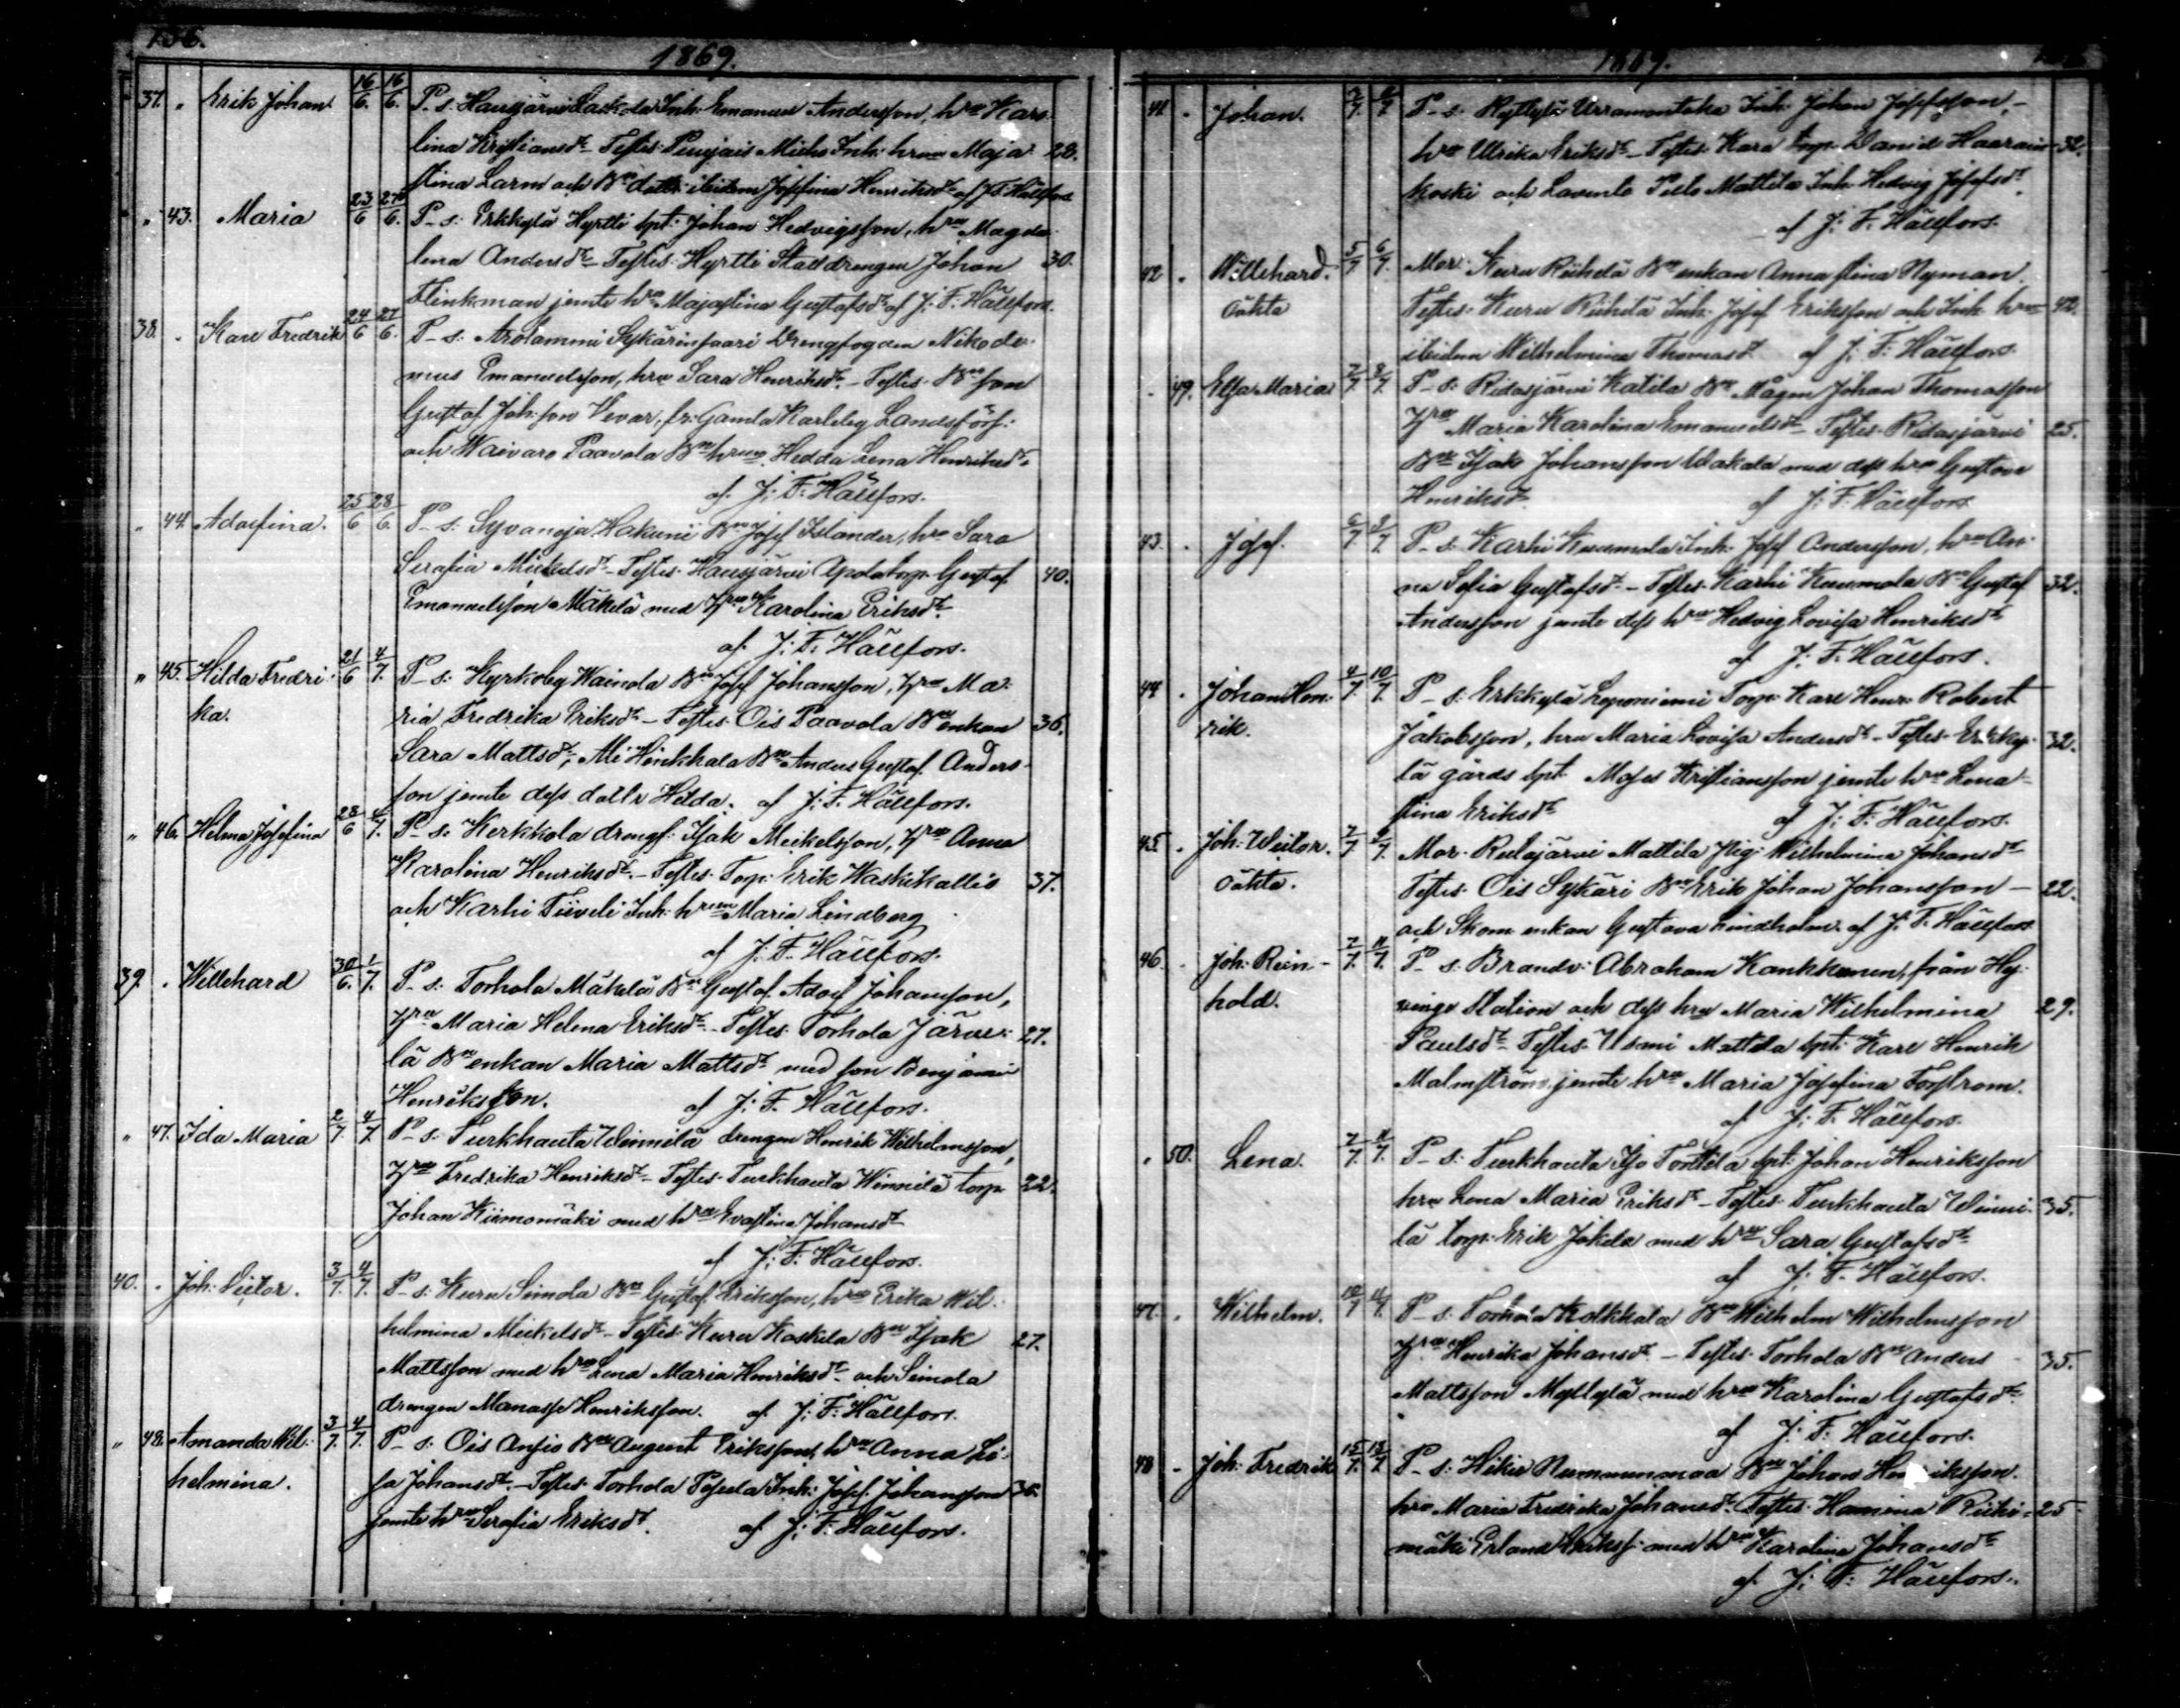 136.
1869.
37. " Erik Johan. 16/6. 16/6. P. s. Hausjärvi Inh. Emanuel Andersson, hru Karo-
lina Kristiansdr - Testes: Inh. hrun Maja 28.
stina och Bm dottr ibidem Josefina Henriksdr af J. F. Hällfors
" 43. Maria 23/6 27/6. P. s. Erkkylä Hyrtti spt. Johan Hedvigsson, hru Magda-
lena Andersdr - Testes: Hyrtti Stalldrengen Johan 30.
Flinkman jemte hru Majastina Gustafsdr af J. F. Hällfors.
38. " Karl Fredrik 24/6 27/6. P. s. Arolammi Sykärinsaari Drengfogden Nikode-
mus Emanuelsson, hru Sara Henriksdr. - Testes: Bm son
Gustaf Joh:son Vevar, fr. Gamla Karleby Landsförs:
och Waivaro Paavola Bm hrun Hedda Lena Henriksdr.
af J. F. Hällfors.
" 44. Adolfina. 25/6 28/6. P. s. Syvänoja Hakuni Bm Josef Islander, hru Sara
Serafia Mickelsdr - Testes: Hausjärvi torp. Gustaf 40.
Emanuelsson Mäkelä med hru Karolina Eriksdr.
af J. F. Hällfors.
" 45. Hilda Fredri- 21/6 4/7. P. s. Kyrkoby Wainola Bm Josef Johansson, hru Ma-
ka. ria Fredrika Eriksdr - Testes: Ois Paavola Bm enkan 36.
Sara Mattsdr, Bm Anders Gustaf Anders-
son jemte dess dottr Hilda. af J. F. Hällfors.
" 46. Helma Josefina 28/6 4/7. P. s. Kerkkola drengs. Isak Mickelsson, hru Anna
Karolina Henriksdr. - Testes: Torp. Erik Waskikallio 37.
och Karhi Tiiveli Inh. hrun Maria Lindberg
af J. F. Hällfors.
39. " Willehard 30/6. 1/7. P. s. Torhola Mäkelä Bm Gustaf Adolf Johansson,
hru Maria Helena Eriksdr - Testes: Torhola Järve- 27.
lä Bm enkan Maria Mattsdr med son Benjamin
Henriksson. af J. F. Hällfors.
" 47. Ida Maria 2/7. 4/7. P. s. Turkhauta Winnilä drengen Henrik Wilhelmsson,
hru Fredrika Henriksdr - Testes: Turkhauta Winnilä torp. 22.
Johan Kiimomäki med hru Evastina Johansdr
af J. F. Hällfors.
40. " Joh. Victor. 3/7. 4/7. P. s. Kuru Simola Bm Gustaf Eriksson, hru Erika Wil-
helmina Mickelsdr - Testes: Kuru Koskela Bm Isak 27.
Mattsson med hru Lena Maria Henriksdr och Simola
drengen Manasse Henriksson. af J. F. Hällfors.
" 48. Amanda Wil- 3/7. 4/7. P. s. Ois Ansio Bm August Eriksson, hru Anna Li-
helmina. sa Johansdr. - Testes: Torhola Inh. Josef Johansson 30.
jemte hru Serafia Eriksdr. af J. F. Hällfors.
1869.
41. " Johan. P. s. Ryttylä Inh. Johan Josefsson, -
hru Ulrika Eriksdr - Testes: Kara torp. David Haarain- 32.
koski och Mattila Inh. Hedvig Josefsdr.
af J. F. Hällfors.
42. " Willehard. 5/7. 6/7. Mor. Kuru Riihelä Bm enkan Anna Stina Nyman,
oäkta Testes: Kuru Riihelä Inh. Josef Eriksson och Inh. hrun 42.
ibidem Wilhelmina Thomasdr af J. F. Hällfors.
" 49. Elsa Maria 7/7. 8/7. P. s. Ridasjärvi Katila Bm Mågen Johan Thomasson
hru Maria Karolina Emanuelsdr - Testes: Ridasjärvi 25.
Bm Isak Johansson Uskola med dess hru Gustava
Henriksdr af J. F. Hällfors.
43. " Josef. 6/7. P. s. Karhi Kuumola Inh. Josef Andersson, hru An-
na Sofia Gustafsdr. - Testes: Karhi Kuumola Bm Gustaf 32.
Andersson jemte dess hru Hedvig Lovisa Henriksdr
af J. F. Hällfors.
44. " Johan Hen- 4/7. 10/7. P. s. Erkkylä Leponiemi Torp. Karl Henr. Robert
rik. Jakobsson, hru Maria Lovisa Andersdr - Testes: Erkky- 32.
lä gårds spt. Moses Kristiansson jemte hru Lena
stina Eriksdr af J. F. Hällfors.
45. " Joh. Victor. 7/7. Mor. Rutajärvi Mattila Pig. Wilhelmina Johansdr
oäkta. Testes: Ois Sykäri Bm Erik Johan Johansson - 22.
och Skom. enkan Gustava Lindholm. af J. F. Hällfors.
46. " Joh. Rein- 7/7. 11/7. P. s. Brandv. Abraham Kankkunen, från Hy-
hold. vinge Station och dess hru Maria Wilhelmina 29.
Paulsdr - Testes: Usmi Mattila spt. Karl Henrik
Malmström jemte hru Maria Josefina Forsström.
af J. F. Hällfors.
" 50. Lena. 7/7. 11/7. P. s. Turkhauta Iso Tonttila spt. Johan Henriksson
hru Lena Maria Eriksdr - Testes: Turkhauta Winni- 35.
lä torp. Erik Jokela med hru Sara Gustafsdr
af J. F. Hällfors.
47. " Wilhelm. 10/7 11/7. P. s. Torhola Kolkkala Bm Wilhelm Wilhelmsson
hru Henrika Johansdr. - Testes: Torhola Bm Anders 35.
Mattsson Myllylä med hru Karolina Gustafsdr.
af J. F. Hällfors.
48 - Joh. Fredrik 15/7. P. s. Hikiä Nummenmaa Bm Johan Henriksson.
hru Maria Fredrika Johansdr. Testes: Hamina Riihi- 25
mäki Erland Erikss. med hru Karolina Johansdr
af J. F. Hällfors.